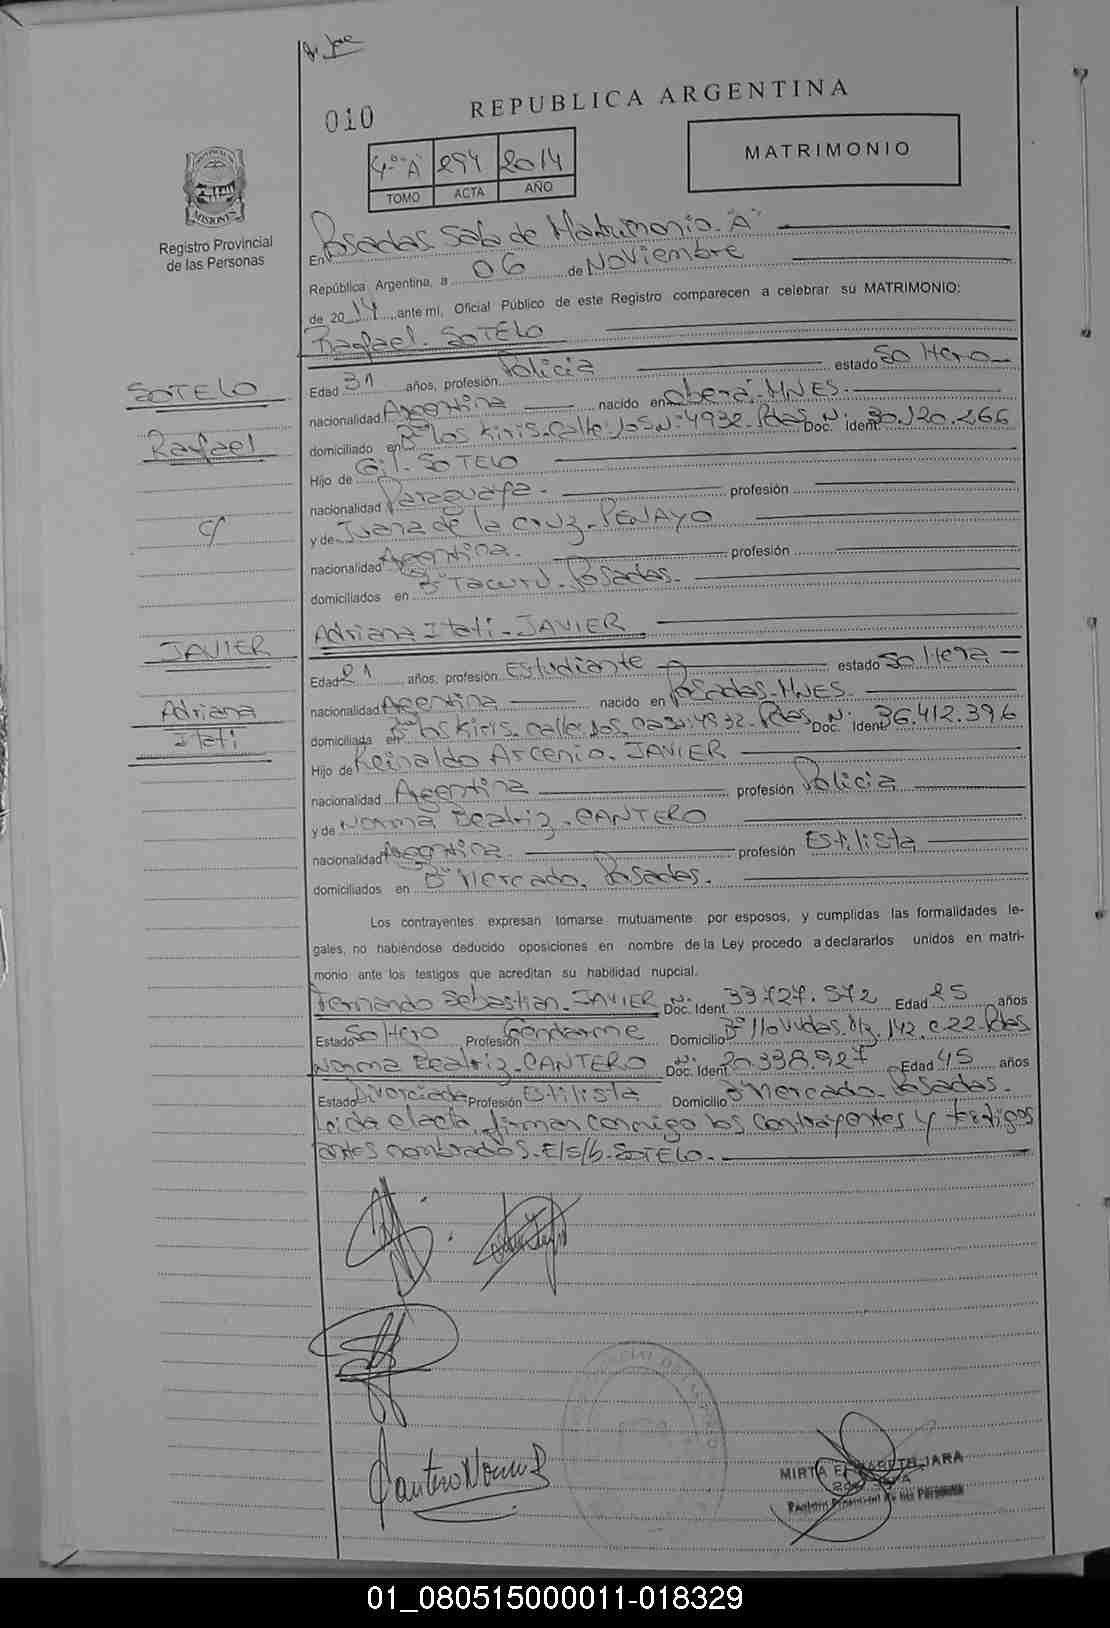 010
REPUBLICA ARGENTINA
4º "A" 294 2014
TOMO ACTA AÑO
MATRIMONIO
MISIONES
Registro Provincial
de las Personas
En Posadas Sala de Matrimonio - "A"
República Argentina, a 06 de Noviembre
de 2014, ante mi, Oficial Público de este Registro comparecen a celebrar su MATRIMONIO:
Rafael. SOTELO
SOTELO
Rafael
c/
JAVIER
Adriana
Itatí
Edad 31 años, profesión Policia estado Soltero
nacionalidad Argentina nacido en Oberá - MNES.
domiciliado en Bº los Kiris. Calle: Nº 4932 - Pdas Doc. Ident Nº 30.120.266
Hijo de Gil. SOTELO
nacionalidad Paraguaya. profesión
y de Juana de la Cruz - PENAYO
nacionalidad Argentina. profesión
domiciliados en Bº Tacurú. Posadas.
Adriana Itatí - JAVIER
Edad 21 años, profesión Estudiante estado Soltera
nacionalidad Argentina nacido en Posadas - MNES.
domiciliada en Bº los Kiris. Calle: casa: 4932 - Pdas Doc. Ident Nº 36.412.396
Hijo de Reinaldo Arcenio. JAVIER
nacionalidad Argentina profesión Policia
y de Norma Beatriz - CANTERO
nacionalidad Argentina profesión Estilista
domiciliados en Bº Mercado. Posadas.
Los contrayentes expresan tomarse mutuamente por esposos, y cumplidas las formalidades le-
gales, no habiéndose deducido oposiciones en nombre de la Ley procedo a declararlos unidos en matri-
monio ante los testigos que acreditan su habilidad nupcial.
Fernando Sebastian. JAVIER Doc. Ident. Nº 33.727.572 Edad 25 años
Estado Soltero Profesión Gendarme Domicilio Bº 110 Vvdas. 142 c. 22 - Pdas
Norma Beatriz - CANTERO Doc. Ident Nº 20.338.927 Edad 45 años
Estado Divorciada Profesión Estilista Domicilio Bº Mercado - Posadas.
Leida el acta, firman conmigo los contrayentes y testigos
antes nombrados - E/s/b - SOTELO.
Cantero Norma B
MIRTA ELIZABETH JARA
Registro Provincial de las Personas
01_080515000011-018329